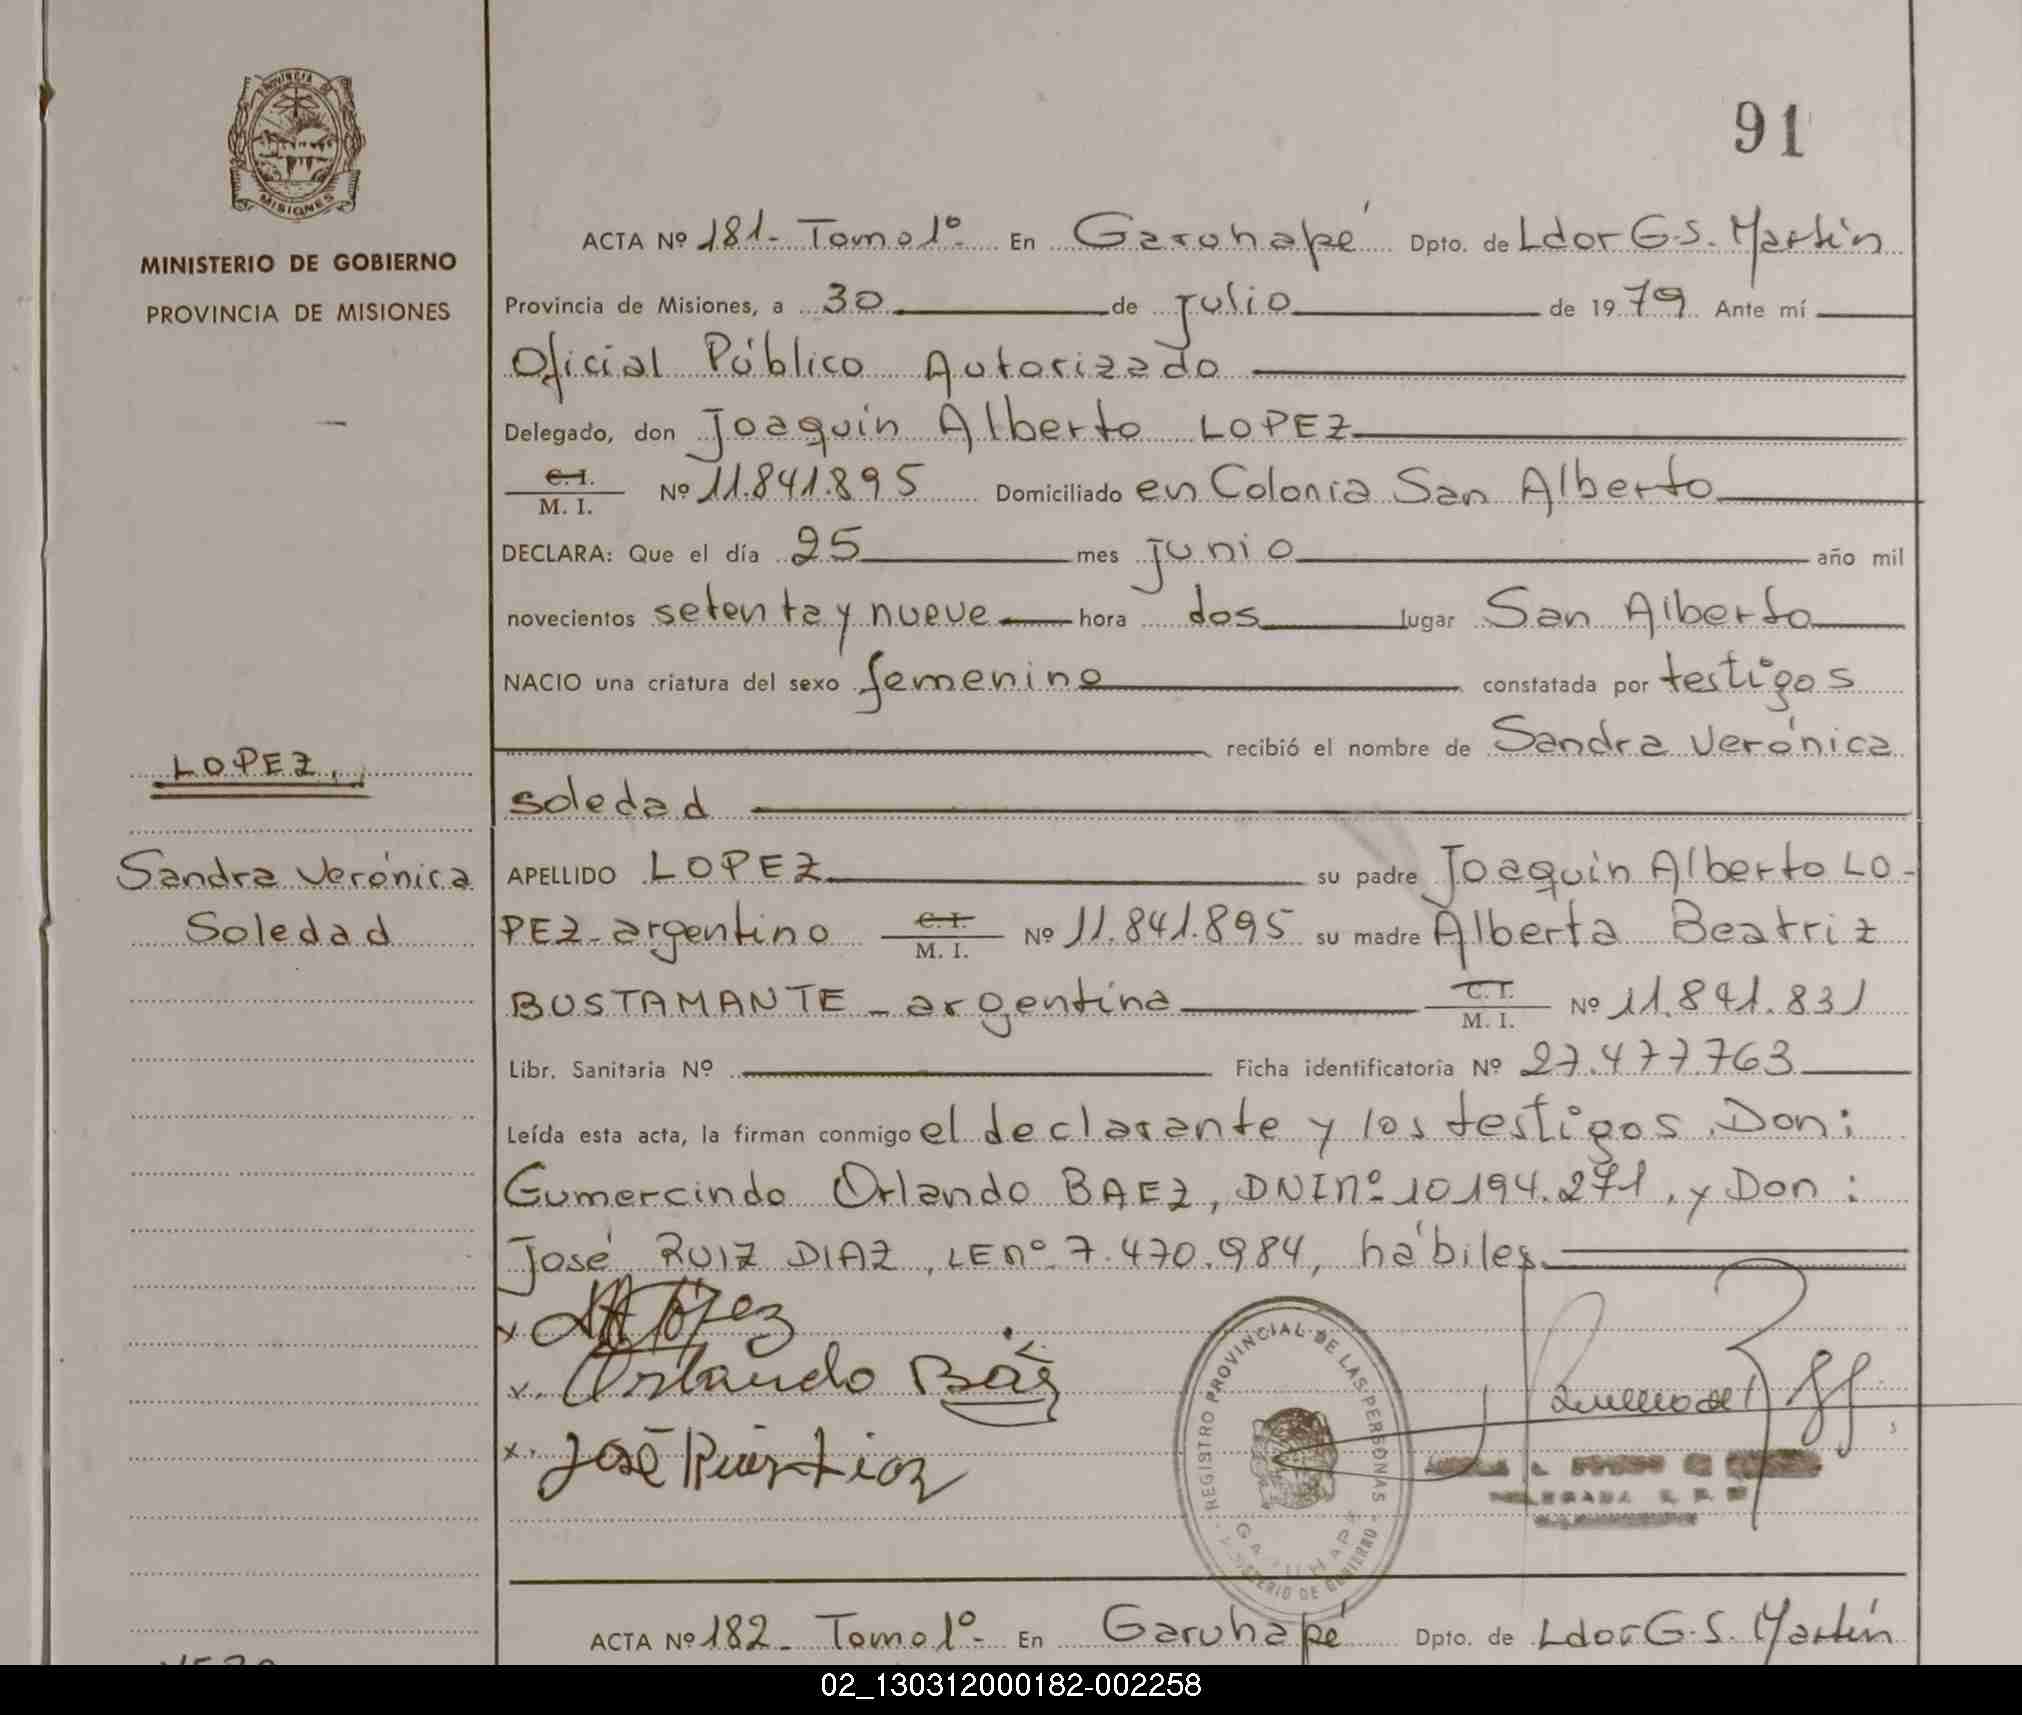 PROVINCIA DE
MISIONES
MINISTERIO DE GOBIERNO
PROVINCIA DE MISIONES
91
ACTA Nº 181 - Tomo 1º - En Garuhapé Dpto. de Ldor G. S. Martín
Provincia de Misiones, a 30 de julio de 1979. Ante mí
Oficial Público Autorizado
Delegado, don Joaquín Alberto LOPEZ
C. I.
M. I. Nº 11.841.895 Domiciliado en Colonia San Alberto
DECLARA: Que el día 25 mes junio año mil
novecientos setenta y nueve hora dos lugar San Alberto
NACIO una criatura del sexo femenino constatada por testigos
recibió el nombre de Sandra Verónica
Soledad
LOPEZ,
Sandra Verónica
Soledad
APELLIDO LOPEZ su padre Joaquín Alberto LO-
PEZ - argentino C. I. M. I. Nº 11.841.895 su madre Alberta Beatriz
BUSTAMANTE - argentina C. I. M. I. Nº 11.841.831
Libr. Sanitaria Nº Ficha identificatoria Nº 27.477.763
Leída esta acta, la firman conmigo el declarante y los testigos, Don:
Gumercindo Orlando BAEZ, DNI nº 10.194.271, y Don:
José RUIZ DIAZ, LE nº 7.470.984, hábiles.
x López
x. Orlando Báez
x. José Ruiz Diaz
REGISTRO PROVINCIAL DE LAS PERSONAS
GARUHAPE
MINISTERIO DE GOBIERNO
ACTA Nº 182 - Tomo 1º - En Garuhapé Dpto. de Ldor G. S. Martín
02_130312000182-002258